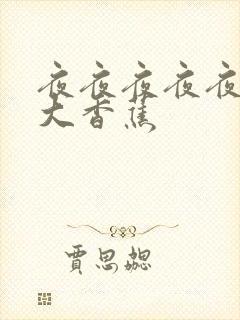 夜夜夜夜夜
大香蕉
賈思勰